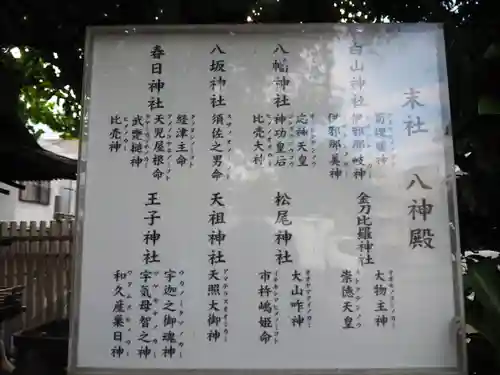 末社 八神殿
白山神社
菊理姫神
伊邪那岐神
伊邪那美神
金刀比羅神社
大物主神
崇徳天皇
八幡神社
応神天皇
神功皇后
比売大利
松尾神社
大山咋神
市杵嶋姫命
八坂神社
須佐之男命
天祖神社
天照大御神
春日神社
経津主命
天児屋根命
武甕槌神
比売神
王子神社
宇迦之御魂神
宇気母智之神
和久産巣日神